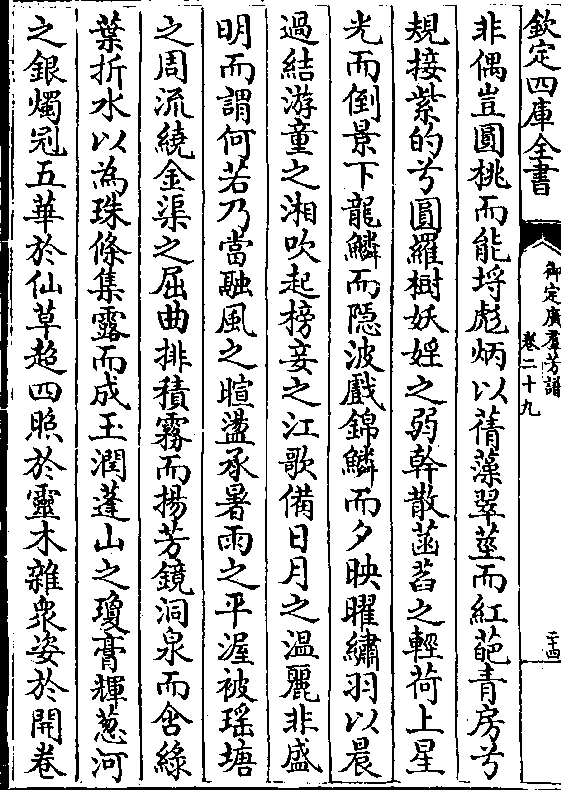 欽定四庫全書
御定廣羣芳譜
卷二十九
二十四
非偶豈圓桃而能埒彪炳以蒨藻翠莖而紅葩青房兮
規接紫的兮圓羅樹妖婬之弱幹散菡萏之輕荷上星
光而倒景下龍鱗而隠波戲錦鱗而夕映曜繡羽以晨
過結游童之湘吹起榜妾之江歌備日月之温麗非盛
明而謂何若乃當融風之暄盪承暑雨之平渥被瑶塘
之周流繞金渠之屈曲排積霧而揚芳鏡洞泉而含綠
葉折水以為珠條集露而成玉潤蓬山之瓊膏輝葱河
之銀燭冠五華於仙草超四照於靈木雜衆姿於開卷